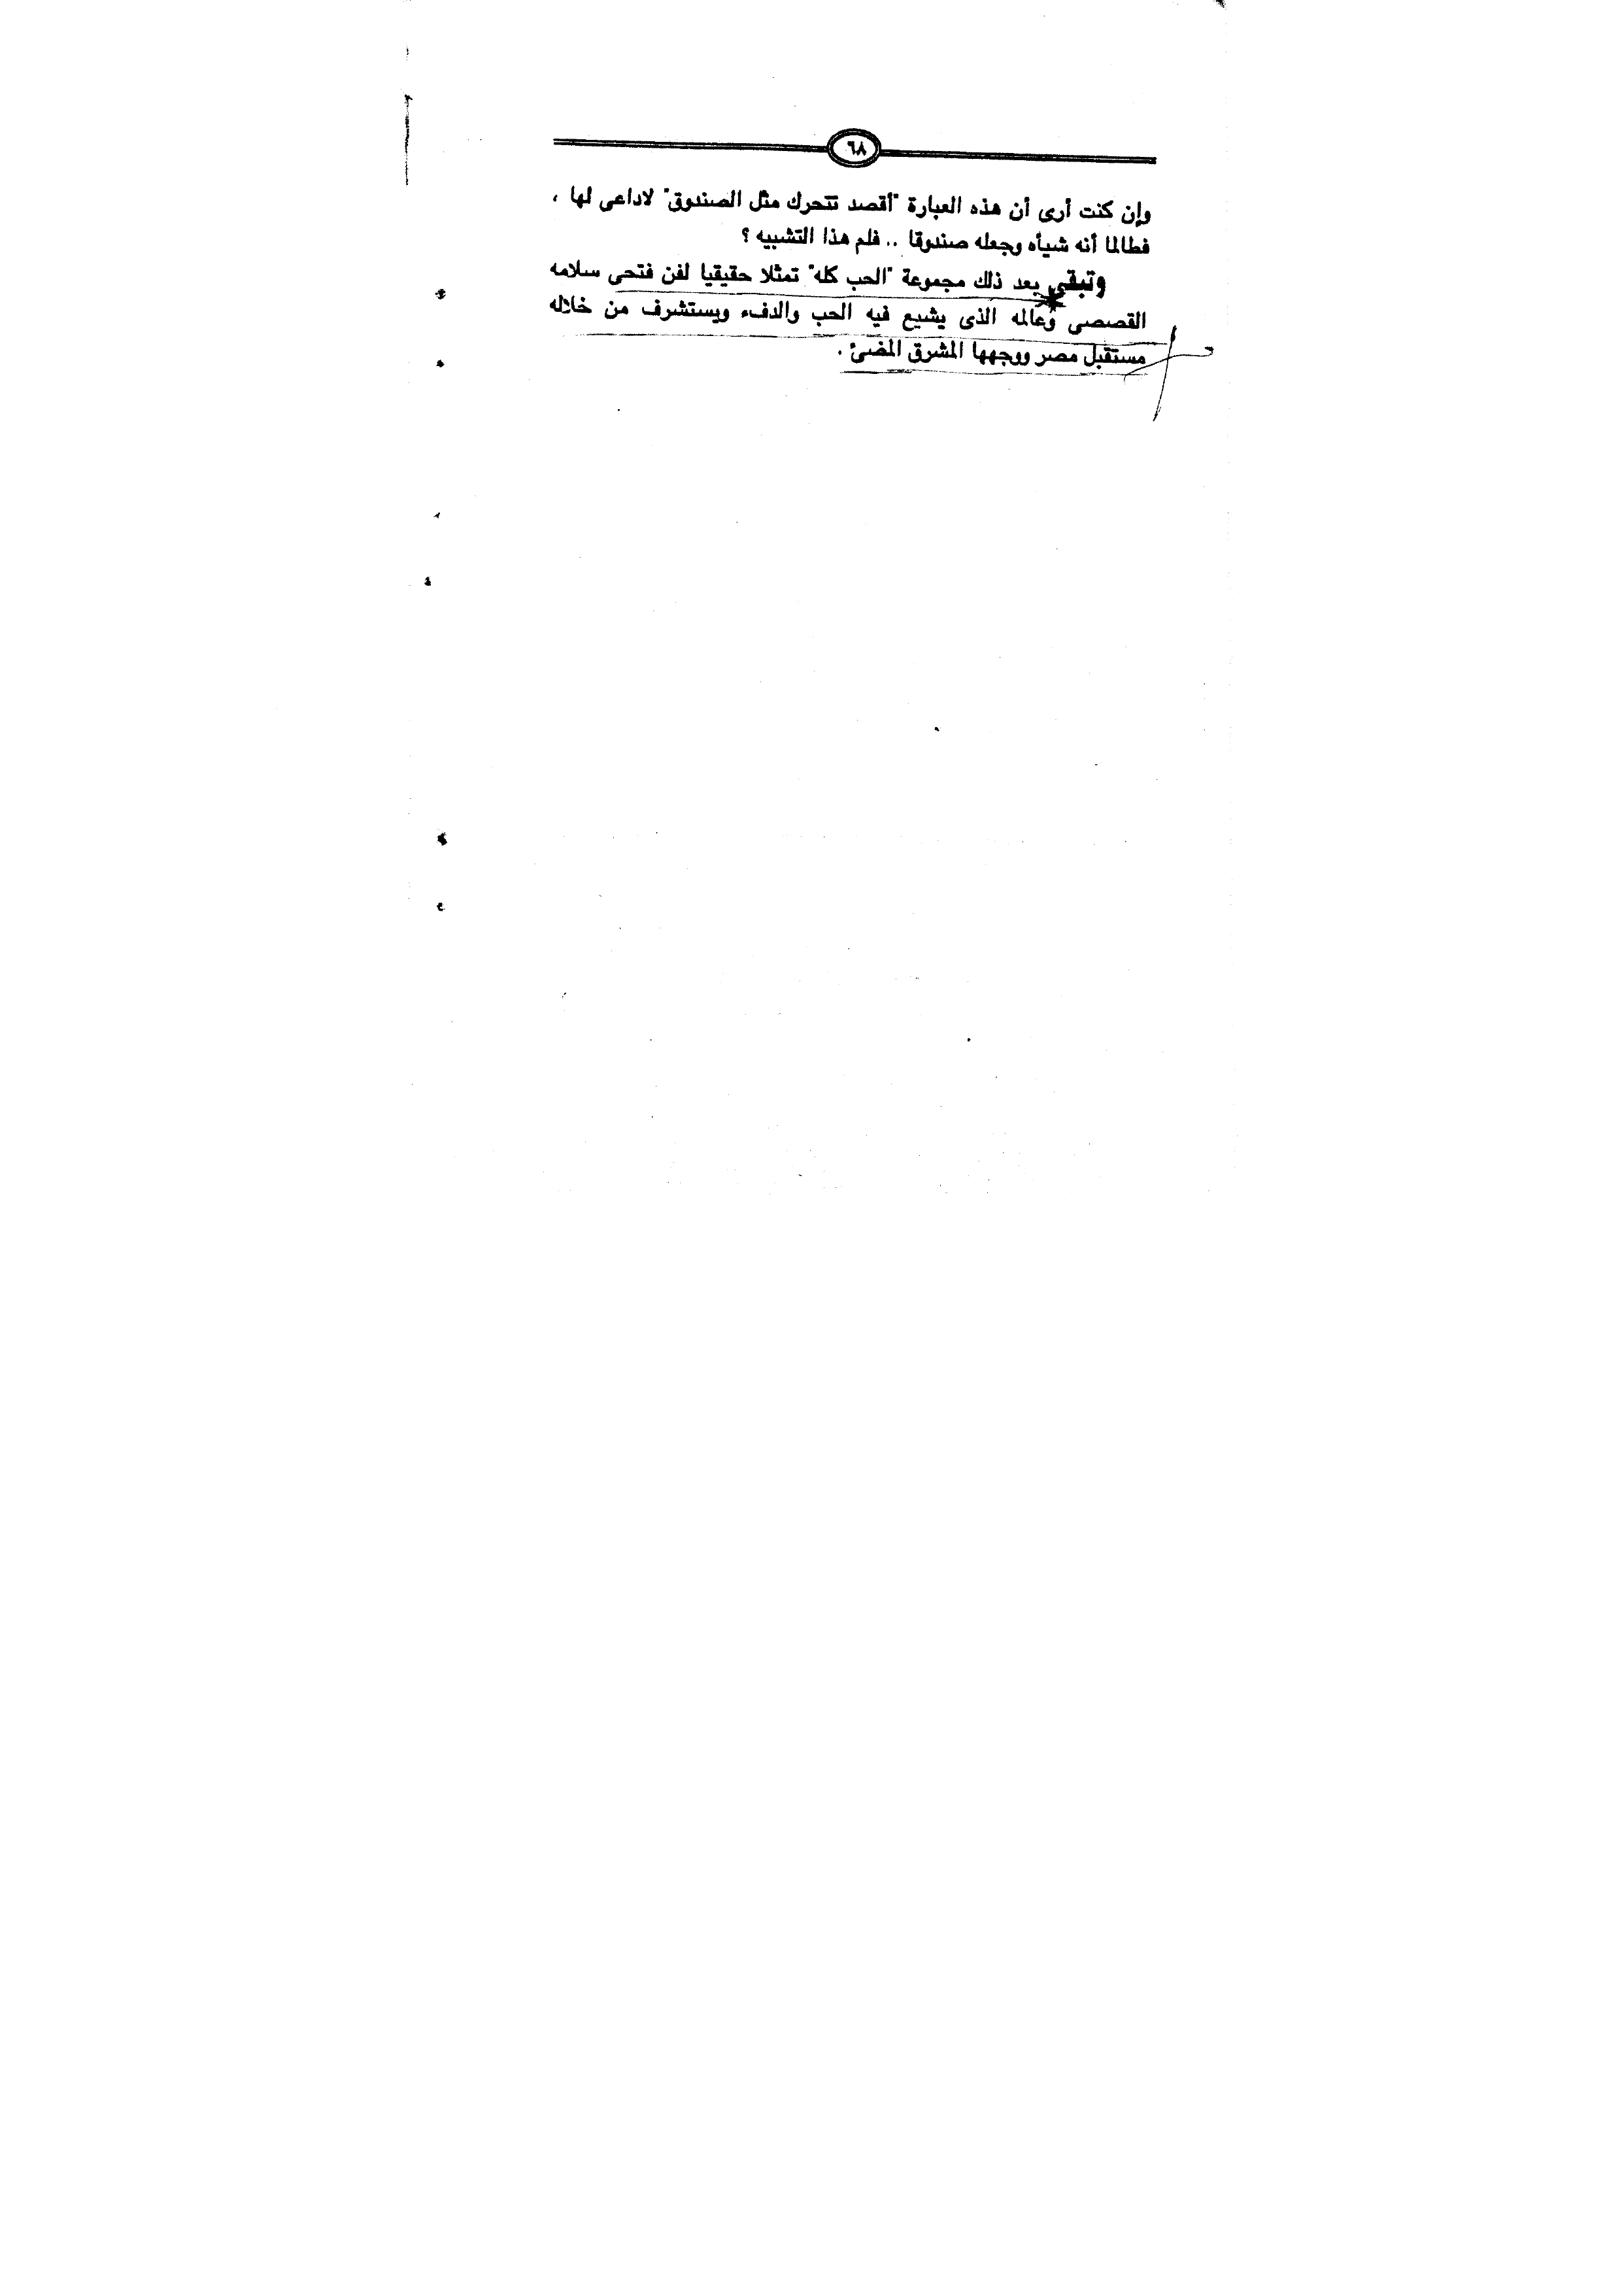 ٦٨
وإن كنت أرى أن هذه العبارة "أقصد تتحرك مثل الصندوق" لاداعى لها ،
فطالما أنه شيأه وجعله صندوقا .. فلم هذا التشبيه ؟
وتبقى بعد ذلك مجموعة "الحب كله" تمثلا حقيقيا لفن فتحى سلامه
القصصى وعالمه الذى يشيع فيه الحب والدفء ويستشرف من خلاله
مستقبل مصر ووجهها المشرق المضئ .